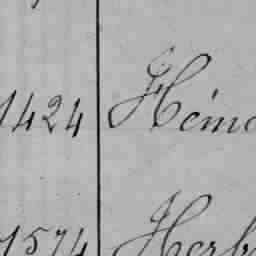 1424 Hémo
1574 Herb